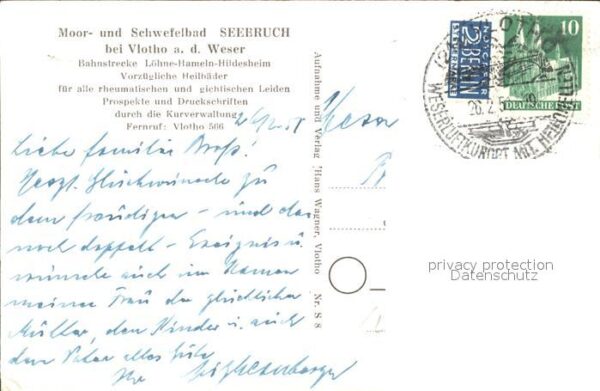 Moor- und Schwefelbad SEEBRUCH
bei Vlotho a. d. Weser
Bahnstrecke Löhne-Hameln-Hildesheim
Vorzügliche Heilbäder
für alle rheumatischen und gichtischen Leiden
Prospekte und Druckschriften
durch die Kurverwaltung
Fernruf: Vlotho 506
Liebe Familie
Herzl. Glückwünsche zu
dem freudigen - und das
noch doppelt - Ereignis u.
wünsche auch im Namen
meiner Frau der glücklichen
Mutter, den Kinder u. auch
dem Vater alles Gute
Ihr
Aufnahme und Verlag Hans Wagner, Vlotho Nr. S 8
NOTOPFER
2 BERLIN
STEUERMARKE
10
DEUTSCHE POST
VLOTHO
WESERLUFTKURORT MIT HEILQUELLEN
privacy protection
Datenschutz